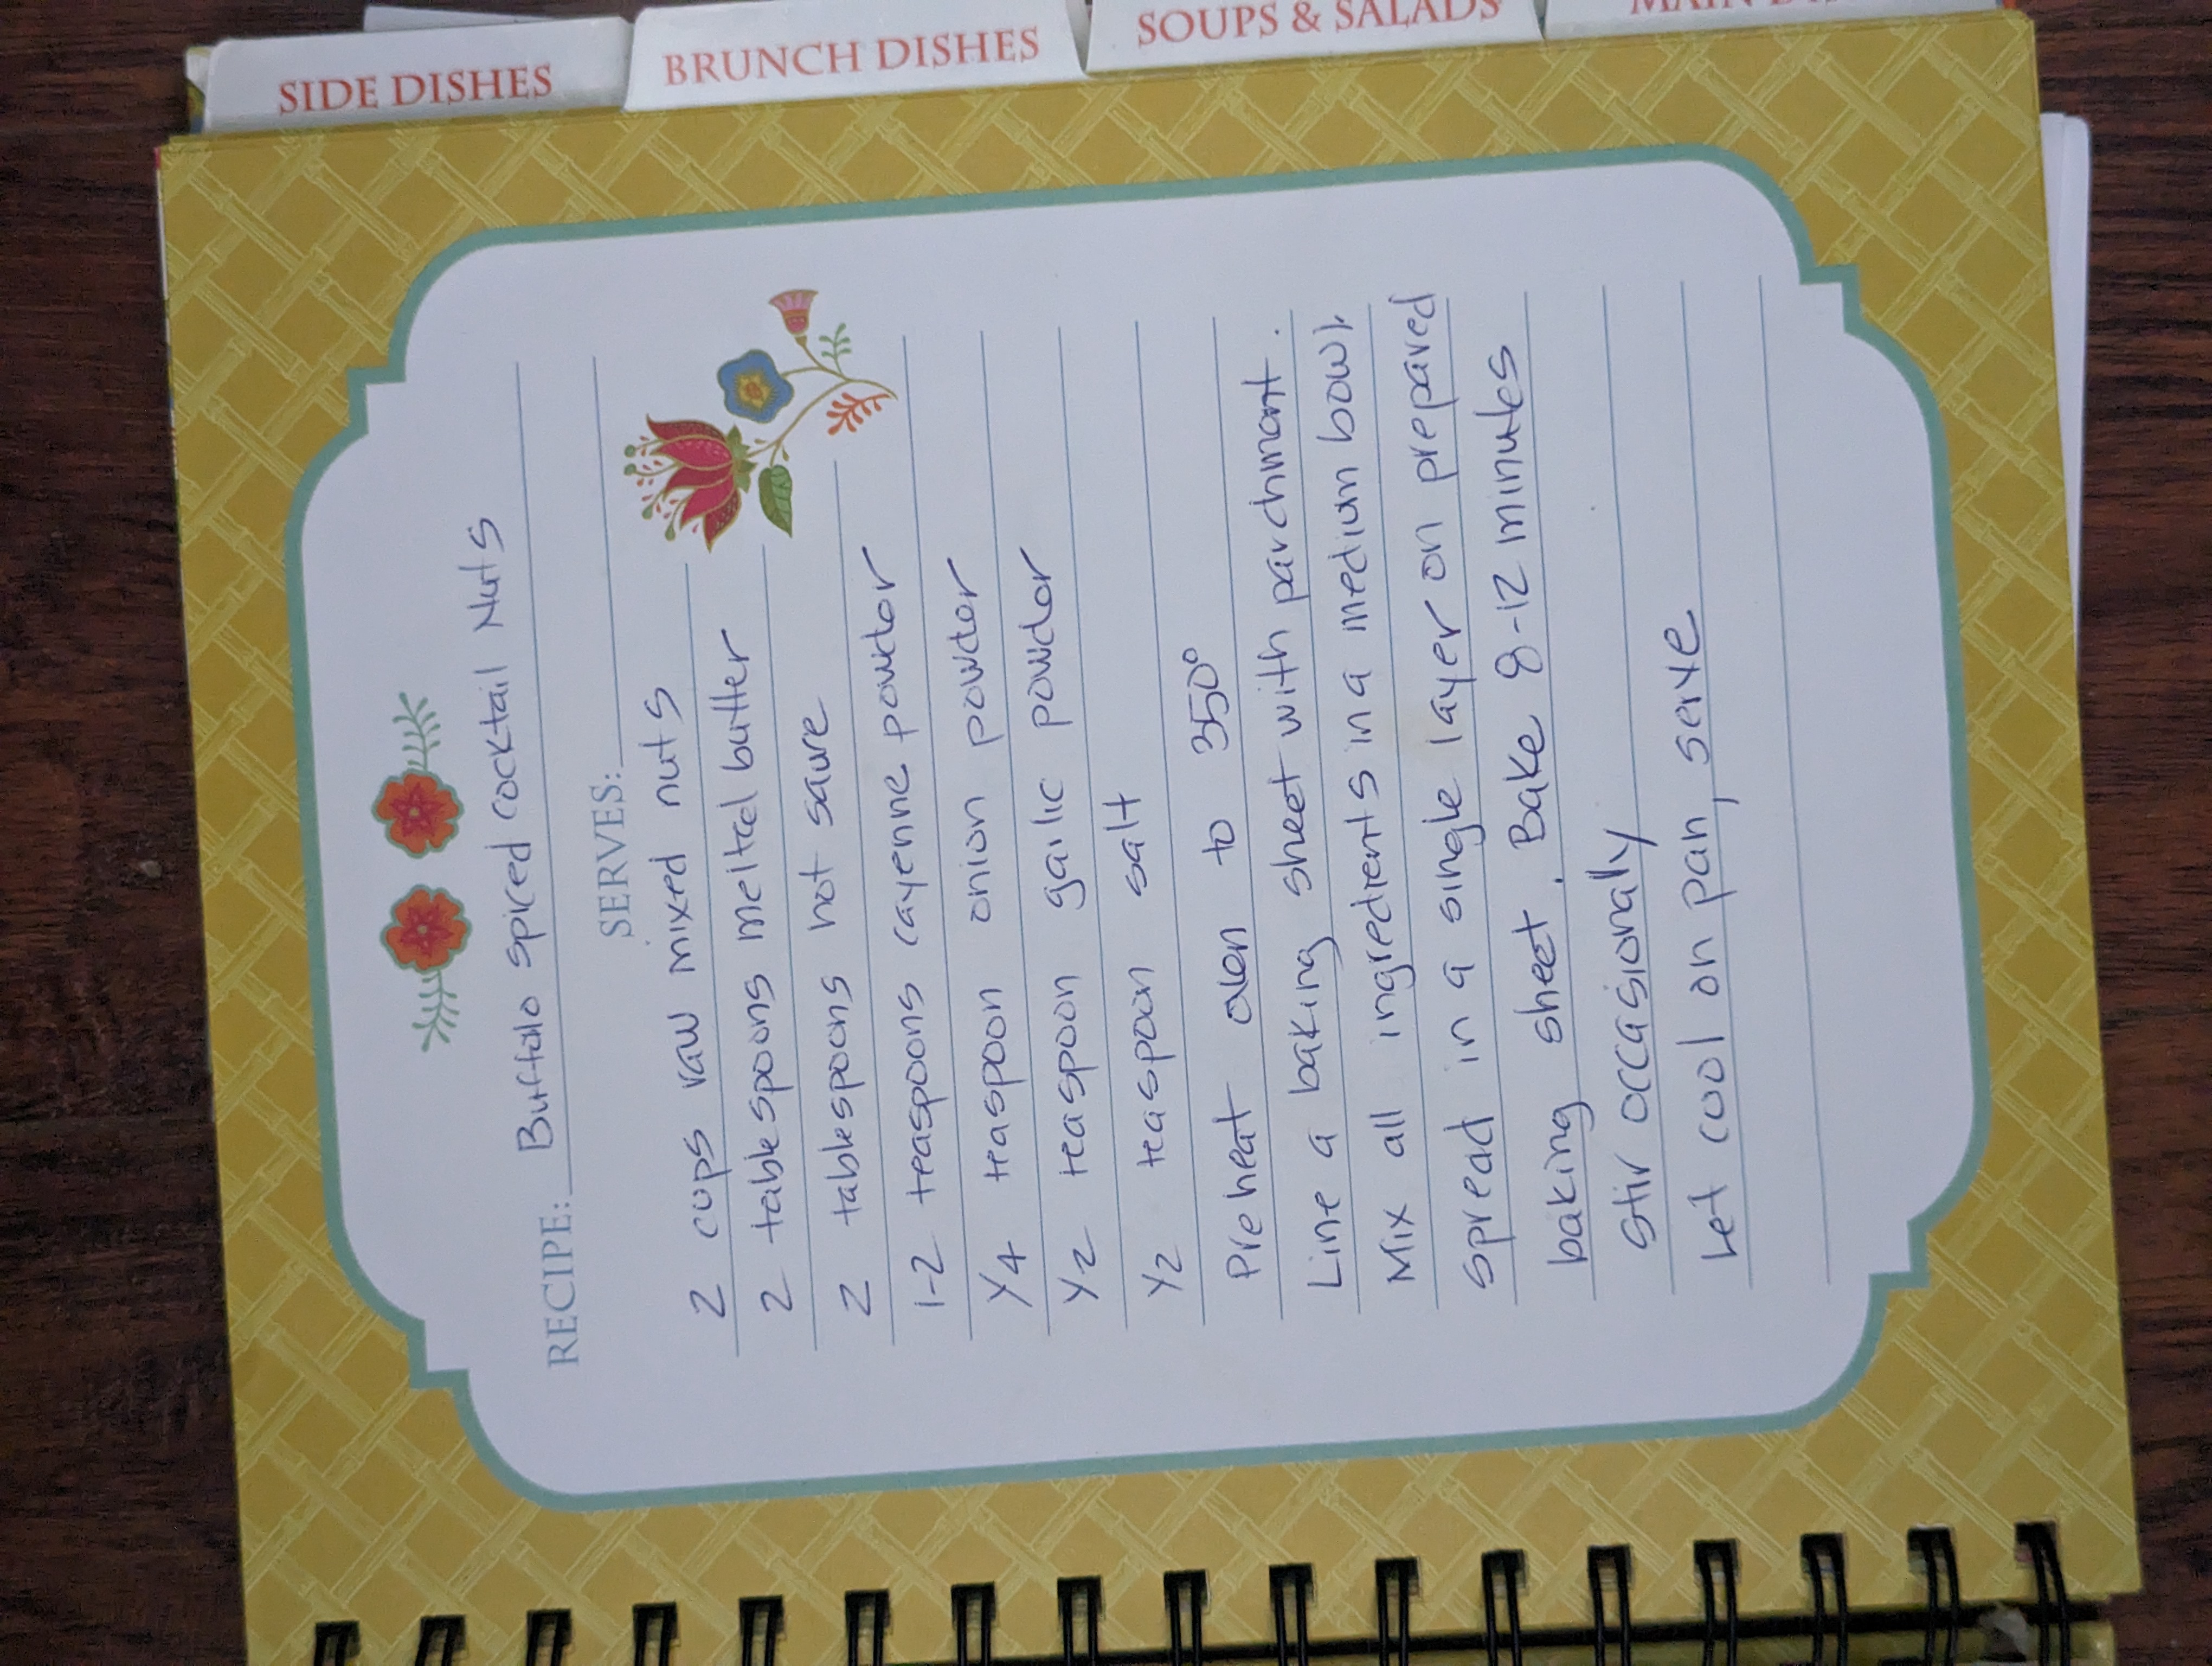 SIDE DISHES
BRUNCH DISHES
SOUPS & SALADS
RECIPE: Buffalo spiced cocktail Nuts
SERVES:
2 cups raw mixed nuts
2 tablespoons melted butter
2 tablespoons hot saure
1-2 teaspoons cayenne powder
1/4 teaspoon onion powder
1/2 teaspoon garlic powder
1/2 teaspoon salt
Preheat oven to 350°
Line a baking sheet with parchment.
Mix all ingredients in a medium bowl.
Spread in a single layer on prepared
baking sheet. Bake 8-12 minutes
Stir occasionally
Let cool on pan, serve